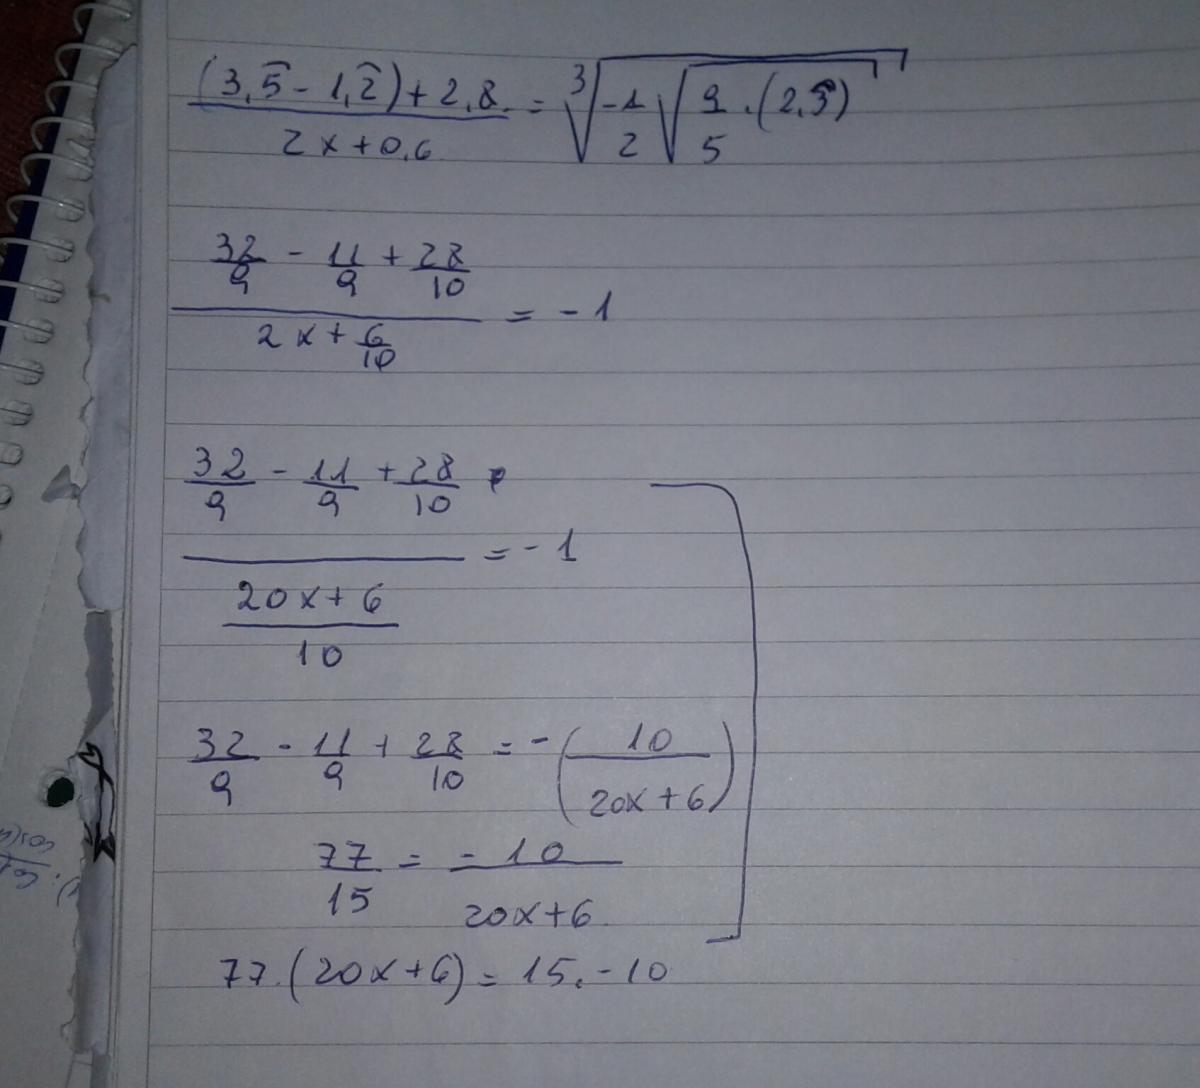 (3,5̂ - 1,2̂) + 2,8 / 2x + 0,6 = ∛(-1/2 √(9/5 · (2,3̂)))
32/9 - 11/9 + 28/10 / 2x + 6/10 = -1
32/9 - 11/9 + 28/10 / (20x + 6)/10 = -1
32/9 - 11/9 + 28/10 = -(10/(20x + 6))
77/15 = -10/(20x + 6)
77 · (20x + 6) = 15 · -10